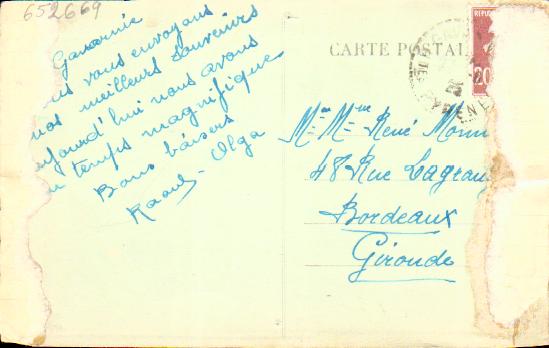 652669
Gavarnie
vous envoyons
nos meilleurs souvenirs
aujourd'hui nous avons
temps magnifique
Bons baisers
Raoul - Olga
CARTE POSTAL
20
M me René Monn
48 Rue Lagrang
Bordeaux
Gironde